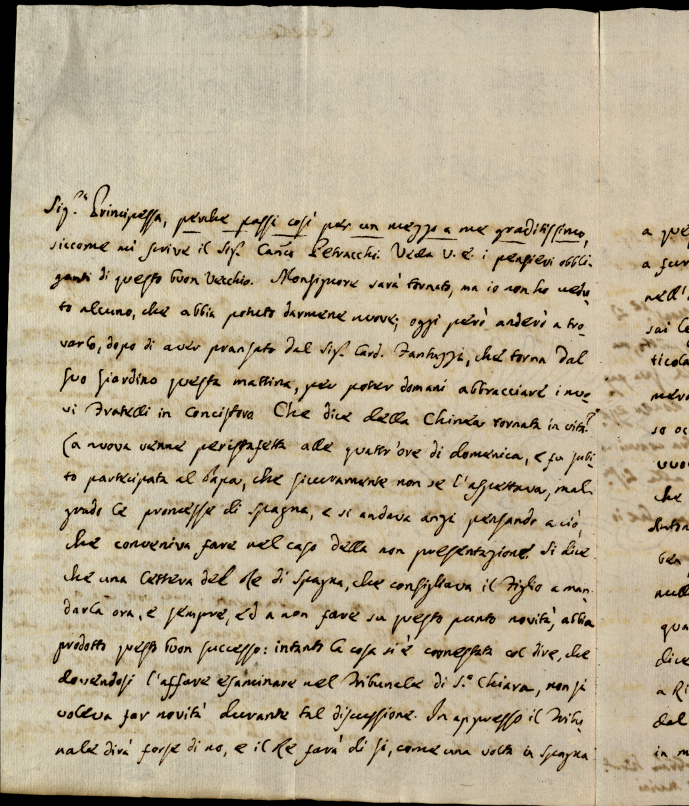 Sig.ra Principessa, perche passi così per un mezzo a me graditissimo,
siccome mi scrive il Sig.r Can.co Petracchi. Veda V. E. i pensieri obbli-
ganti di questo buon Vecchio. Monsignore sarà tornato, ma io non ho vedu-
to alcuno, che abbia potuto darmene nuove; oggi però anderò a tro-
varlo, dopo di aver pranzato dal Sig.r Card. Fantuzzi, che torna dal
suo giardino questa mattina, per poter domani abbracciare i nuo-
vi Fratelli in Concistoro. Che dice della Chinea tornata in vita?
La nuova venne per istaffetta alle quattr'ore di domenica, e fu subi-
to partecipata al Papa, che sicuramente non se l'aspettava, mal-
grado le promesse di Spagna, e si andava anzi pensando a ciò,
che conveniva fare nel caso della non presentazione. Si dice
che una lettera del Re di Spagna, che consigliava il Figlio a man-
darla ora, e sempre, ed a non fare su questo punto novità, abbia
prodotto questo buon successo: intanto la cosa si è connestata col dire, che
dovendosi l'affare esaminare nel Tribunale di S.a Chiara, non si
voleva far novità durante tal discussione. In appresso il Tribu-
nale dirà forse di no, e il Re farà di sì, come una volta in Spagna
a que
a scri
nell'
sai
ticola
so
che
ben
null
qua
dice
a Ri
dal
in m